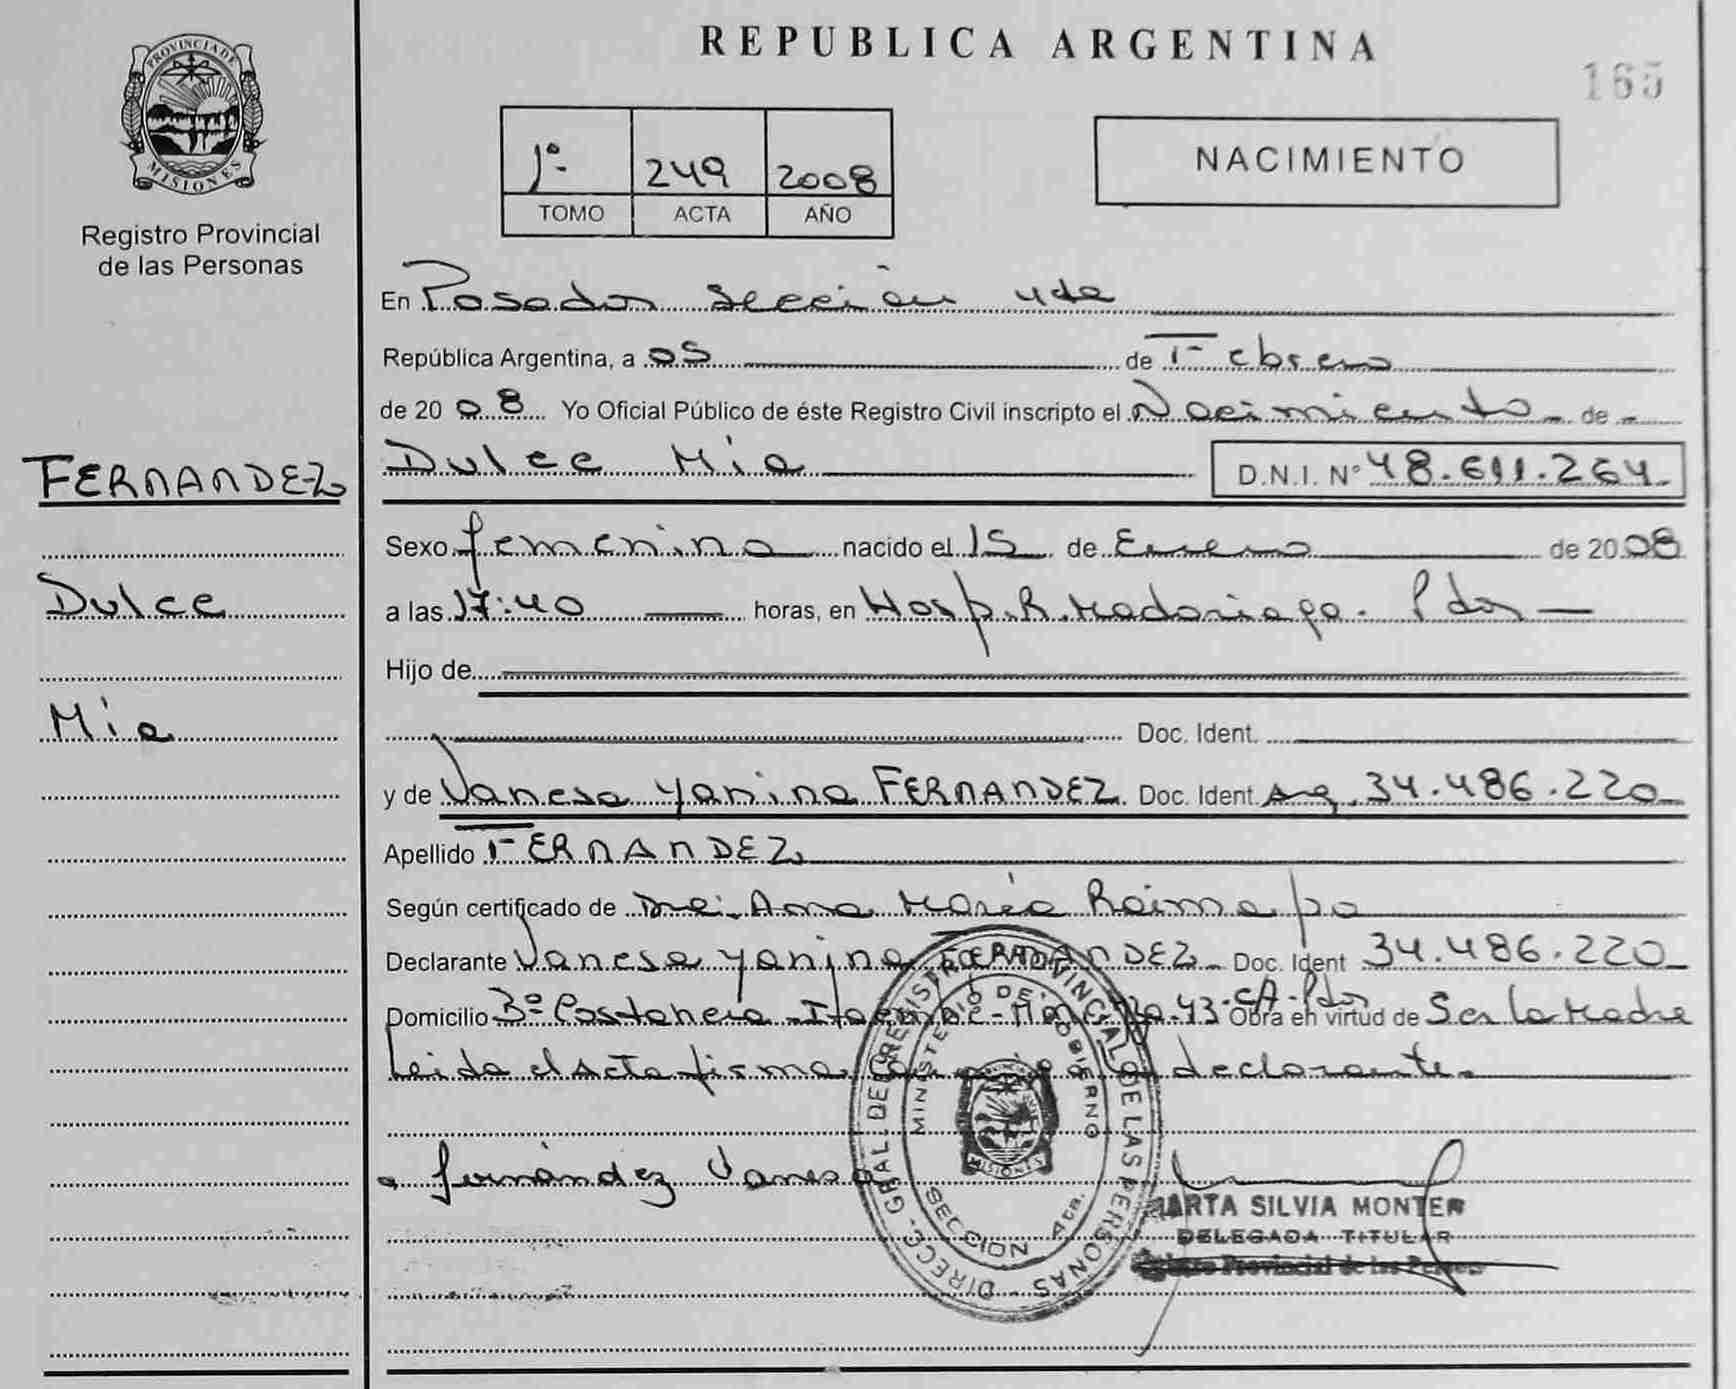 REPUBLICA ARGENTINA
165
PROVINCIA DE
MISIONES
Registro Provincial
de las Personas
1º- 249 2008
TOMO ACTA AÑO
NACIMIENTO
En Posadas Sección 4ta
República Argentina, a 05 de Febrero
de 20 08 Yo Oficial Público de éste Registro Civil inscripto el Nacimiento de
Dulce Mía D.N.I. Nº 48.611.264
FERNANDEZ
Sexo femenino nacido el 15 de Enero de 20 08
Dulce
a las 17:40 horas, en Hosp. R. Madariaga. Pdas
Hijo de
Mía
Doc. Ident.
y de Vanesa Yanina FERNANDEZ Doc. Ident Arg. 34.486.220
Apellido FERNANDEZ
Según certificado de Ana María
Declarante Vanesa Yanina FERNANDEZ Doc. Ident 34.486.220
Domicilio Bº Costanera Itaembé 43 Pdas Obra en virtud de Ser la Madre
Leida el Acta firma la declarante.
Fernández Vanesa
DIRECC. GRAL DE REGISTRO PROVINCIAL DE LAS PERSONAS
MINISTERIO DE GOBIERNO
MISIONES
SECCION 4ta.
MARTA SILVIA MONTER
DELEGADA TITULAR
Registro Provincial de las Personas